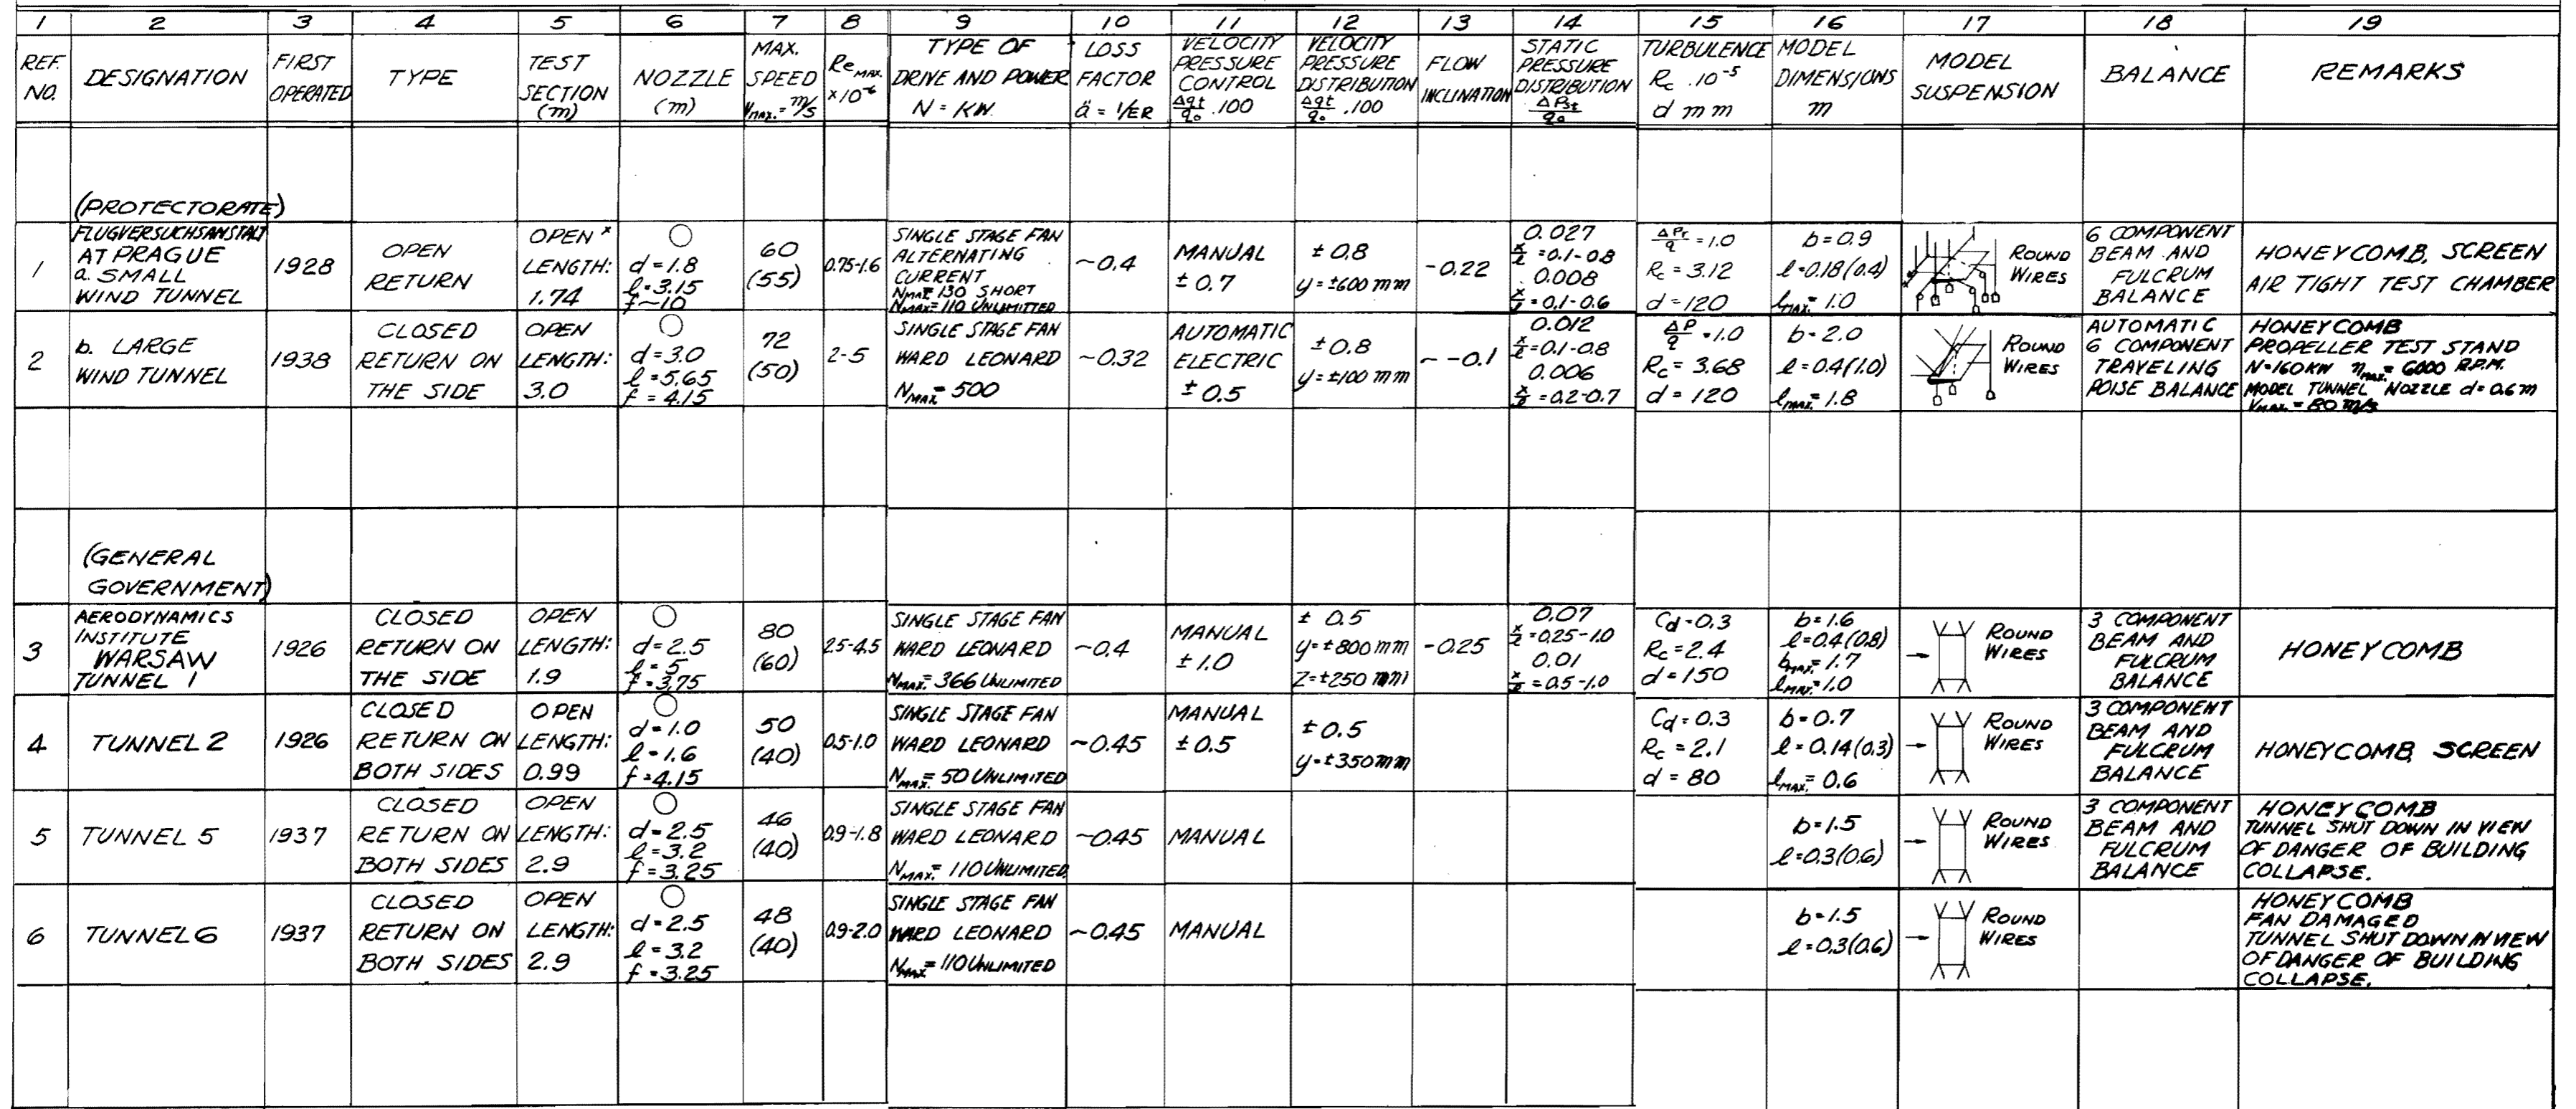 1 2 3 4 5 6 7 8 9 10 11 12 13 14 15 16 17 18 19
REF. NO.
DESIGNATION
FIRST
OPERATED
TYPE
TEST
SECTION
(m)
NOZZLE
(m)
MAX.
SPEED
VMAX. = m/s
ReMAX.
×10⁻⁶
TYPE OF
DRIVE AND POWER
N = KW.
LOSS
FACTOR
ä = 1/ER
VELOCITY
PRESSURE
CONTROL
Δqt/q₀ .100
VELOCITY
PRESSURE
DISTRIBUTION
Δqt/q₀ .100
FLOW
INCLINATION
STATIC
PRESSURE
DISTRIBUTION
ΔPst/q₀
TURBULENCE
Rc .10⁻⁵
d mm
MODEL
DIMENSIONS
m
MODEL
SUSPENSION
BALANCE
REMARKS
(PROTECTORATE)
1
FLUGVERSUCHSANSTALT
AT PRAGUE
a. SMALL
WIND TUNNEL
1928
OPEN
RETURN
OPEN ×
LENGTH:
1.74
d=1.8
l=3.15
f~10
60
(55)
0.75-1.6
SINGLE STAGE FAN
ALTERNATING
CURRENT
NMAX.= 130 SHORT
NMAX.= 110 UNLIMITTED
~0.4
MANUAL
± 0.7
± 0.8
y=±600 mm
-0.22
0.027
x/l =0.1-0.8
0.008
x/l =0.1-0.6
ΔPr/q =1.0
Rc = 3.12
d=120
b=0.9
l=0.18(0.4)
lMAX.= 1.0
ROUND
WIRES
6 COMPONENT
BEAM AND
FULCRUM
BALANCE
HONEYCOMB, SCREEN
AIR TIGHT TEST CHAMBER
2
b. LARGE
WIND TUNNEL
1938
CLOSED
RETURN ON
THE SIDE
OPEN
LENGTH:
3.0
d=3.0
l=5.65
f = 4.15
72
(50)
2-5
SINGLE STAGE FAN
WARD LEONARD
NMAX.= 500
~0.32
AUTOMATIC
ELECTRIC
± 0.5
±0.8
y=±100 mm
~ -0.1
0.012
x/l =0.1-0.8
0.006
x/l =0.2-0.7
ΔP/q =1.0
Rc = 3.68
d=120
b=2.0
l=0.4(1.0)
lMAX.= 1.8
ROUND
WIRES
AUTOMATIC
6 COMPONENT
TRAVELING
POISE BALANCE
HONEYCOMB
PROPELLER TEST STAND
N=160KW ηMAX.= 6000 R.P.M.
MODEL TUNNEL NOZZLE d=0.6m
VMAX.= 80 m/s
(GENERAL
GOVERNMENT)
3
AERODYNAMICS
INSTITUTE
WARSAW
TUNNEL 1
1926
CLOSED
RETURN ON
THE SIDE
OPEN
LENGTH:
1.9
d=2.5
l=5
f=3.75
80
(60)
2.5-4.5
SINGLE STAGE FAN
WARD LEONARD
NMAX.= 366 UNLIMITED
~0.4
MANUAL
±1.0
± 0.5
y=±800mm
Z=±250 mm
-0.25
0.07
x/l =0.25-1.0
0.01
x/l =0.5-1.0
Cd=0.3
Rc=2.4
d=150
b=1.6
l=0.4(0.8)
bMAX.= 1.7
lMAX.=1.0
ROUND
WIRES
3 COMPONENT
BEAM AND
FULCRUM
BALANCE
HONEYCOMB
4
TUNNEL 2
1926
CLOSED
RETURN ON
BOTH SIDES
OPEN
LENGTH:
0.99
d=1.0
l=1.6
f=4.15
50
(40)
0.5-1.0
SINGLE STAGE FAN
WARD LEONARD
NMAX.= 50 UNLIMITED
~0.45
MANUAL
±0.5
±0.5
y=±350mm
Cd=0.3
Rc=2.1
d=80
b=0.7
l=0.14(0.3)
lMAX.= 0.6
ROUND
WIRES
3 COMPONENT
BEAM AND
FULCRUM
BALANCE
HONEYCOMB, SCREEN
5
TUNNEL 5
1937
CLOSED
RETURN ON
BOTH SIDES
OPEN
LENGTH:
2.9
d=2.5
l=3.2
f=3.25
46
(40)
0.9-1.8
SINGLE STAGE FAN
WARD LEONARD
NMAX.= 110 UNLIMITED
~0.45
MANUAL
b=1.5
l=0.3(0.6)
ROUND
WIRES
3 COMPONENT
BEAM AND
FULCRUM
BALANCE
HONEYCOMB
TUNNEL SHUT DOWN IN VIEW
OF DANGER OF BUILDING
COLLAPSE.
6
TUNNEL 6
1937
CLOSED
RETURN ON
BOTH SIDES
OPEN
LENGTH:
2.9
d=2.5
l=3.2
f=3.25
48
(40)
0.9-2.0
SINGLE STAGE FAN
WARD LEONARD
NMAX.= 110 UNLIMITED
~0.45
MANUAL
b=1.5
l=0.3(0.6)
ROUND
WIRES
HONEYCOMB
FAN DAMAGED
TUNNEL SHUT DOWN IN VIEW
OF DANGER OF BUILDING
COLLAPSE.